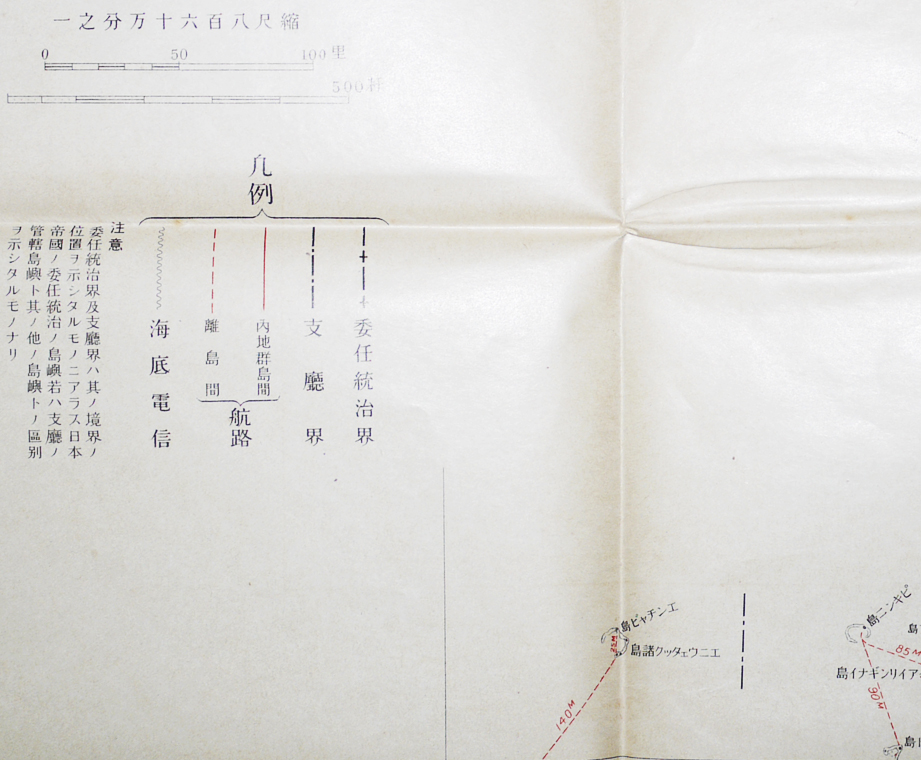 縮尺八百六十万分之一
0 50 100里
500粁
凡例
委任統治界
支廳界
內地群島間
離島間
航路
海底電信
注意
委任統治界及支廳界ハ其ノ境界ノ
位置ヲ示シタルモノニアラス日本
帝國ノ委任統治ノ島嶼若ハ支廳ノ
管轄島嶼ト其ノ他ノ島嶼トノ區別
ヲ示シタルモノナリ
エンチャビ島
エニウェタックク諸島
140M
ビキンニ島
85M
90M
島